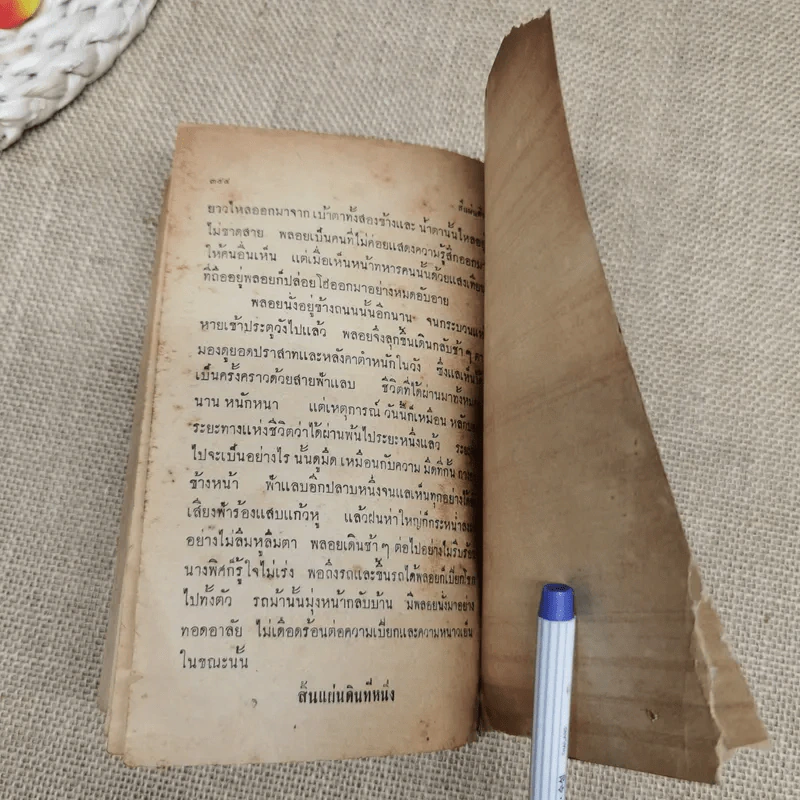 ๓๕๔
สี่แผ่นดิน
ยาวไหลออกมาจาก เบ้าตาทั้งสองข้างและ น้ำตานั้นไหลอยู่
ไม่ขาดสาย พลอยเป็นคนที่ไม่ค่อยแสดงความรู้สึกออกมา
ให้คนอื่นเห็น แต่เมื่อเห็นหน้าทหารคนนั้นด้วยแสงเทียน
ที่ถืออยู่พลอยก็ปล่อยโฮออกมาอย่างหมดอับอาย
พลอยนั่งอยู่ข้างถนนนั้นอีกนาน จนกระบวนแห่
หายเข้าประตูวังไปแล้ว พลอยจึงลุกขึ้นเดินกลับช้า ๆ
มองดูยอดปราสาทและหลังคาตำหนักในวัง ซึ่งแลเห็นได้
เป็นครั้งคราวด้วยสายฟ้าแลบ ชีวิตที่ได้ผ่านมาทั้งหมด
นาน หนักหนา แต่เหตุการณ์ วันนี้ก็เหมือน หลักบอก
ระยะทางแห่งชีวิตว่าได้ผ่านพ้นไประยะหนึ่งแล้ว
ไปจะเป็นอย่างไร นั้นดูมืด เหมือนกับความ มืดที่กั้น
ข้างหน้า ฟ้าแลบอีกปลาบหนึ่งจนแลเห็นทุกอย่างได้
เสียงฟ้าร้องแสบแก้วหู แล้วฝนห่าใหญ่ก็กระหน่ำลงมา
อย่างไม่ลืมหูลืมตา พลอยเดินช้า ๆ ต่อไปอย่างไม่รีบร้อน
นางพิศก็รู้ ใจไม่เร่ง พอถึงรถและขึ้นรถได้พลอยก็เปียกโชก
ไปทั้งตัว รถม้านั้นมุ่งหน้ากลับบ้าน มีพลอยนั่งมาอย่าง
ทอดอาลัย ไม่เดือดร้อนต่อความเปียกและความหนาวเย็น
ในขณะนั้น
สิ้นแผ่นดินที่หนึ่ง